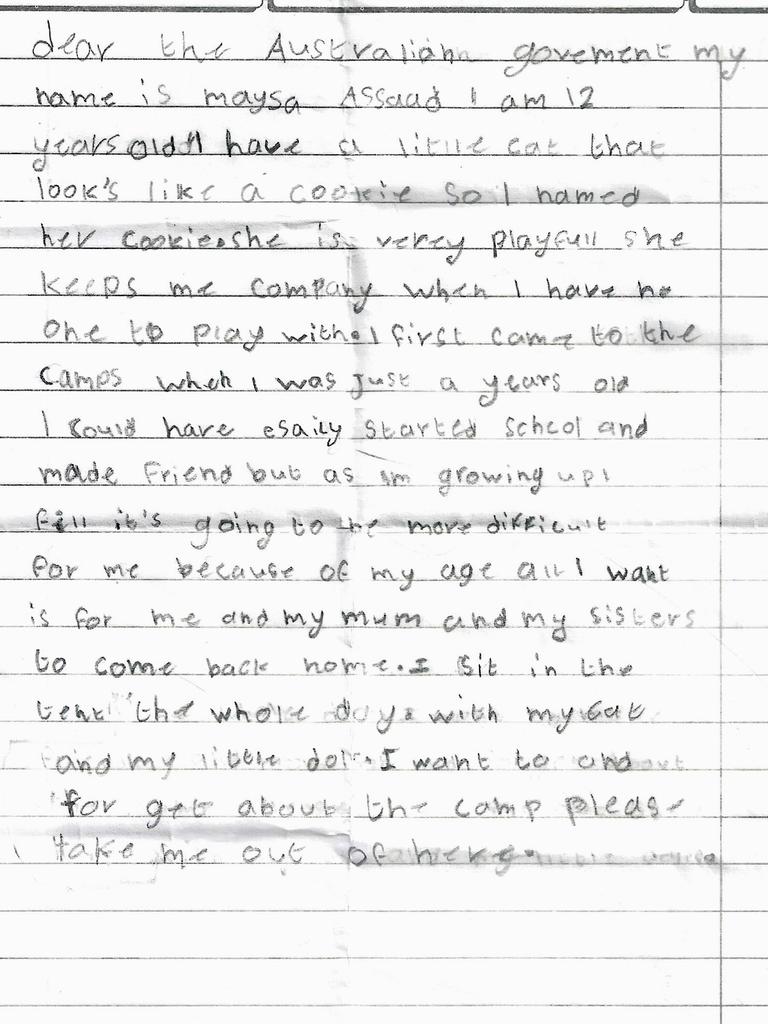 dear the Australiahn goverment my
name is maysa Assaad I am 12
years old I have a little cat that
look's like a cookie so I named
her cookie.she is verey playfull she
keeps me company when I have no
one to play with.I first came to the
camps when I was just a years old
I could have esaily started school and
made friend but as im growing up I
fill it's going to be more difficult
for me because of my age all I want
is for me and my mum and my sisters
to come back home.I sit in the
tent the whole day with my cat
and my little doll.I want to and
for get about the camp please
take me out of here.